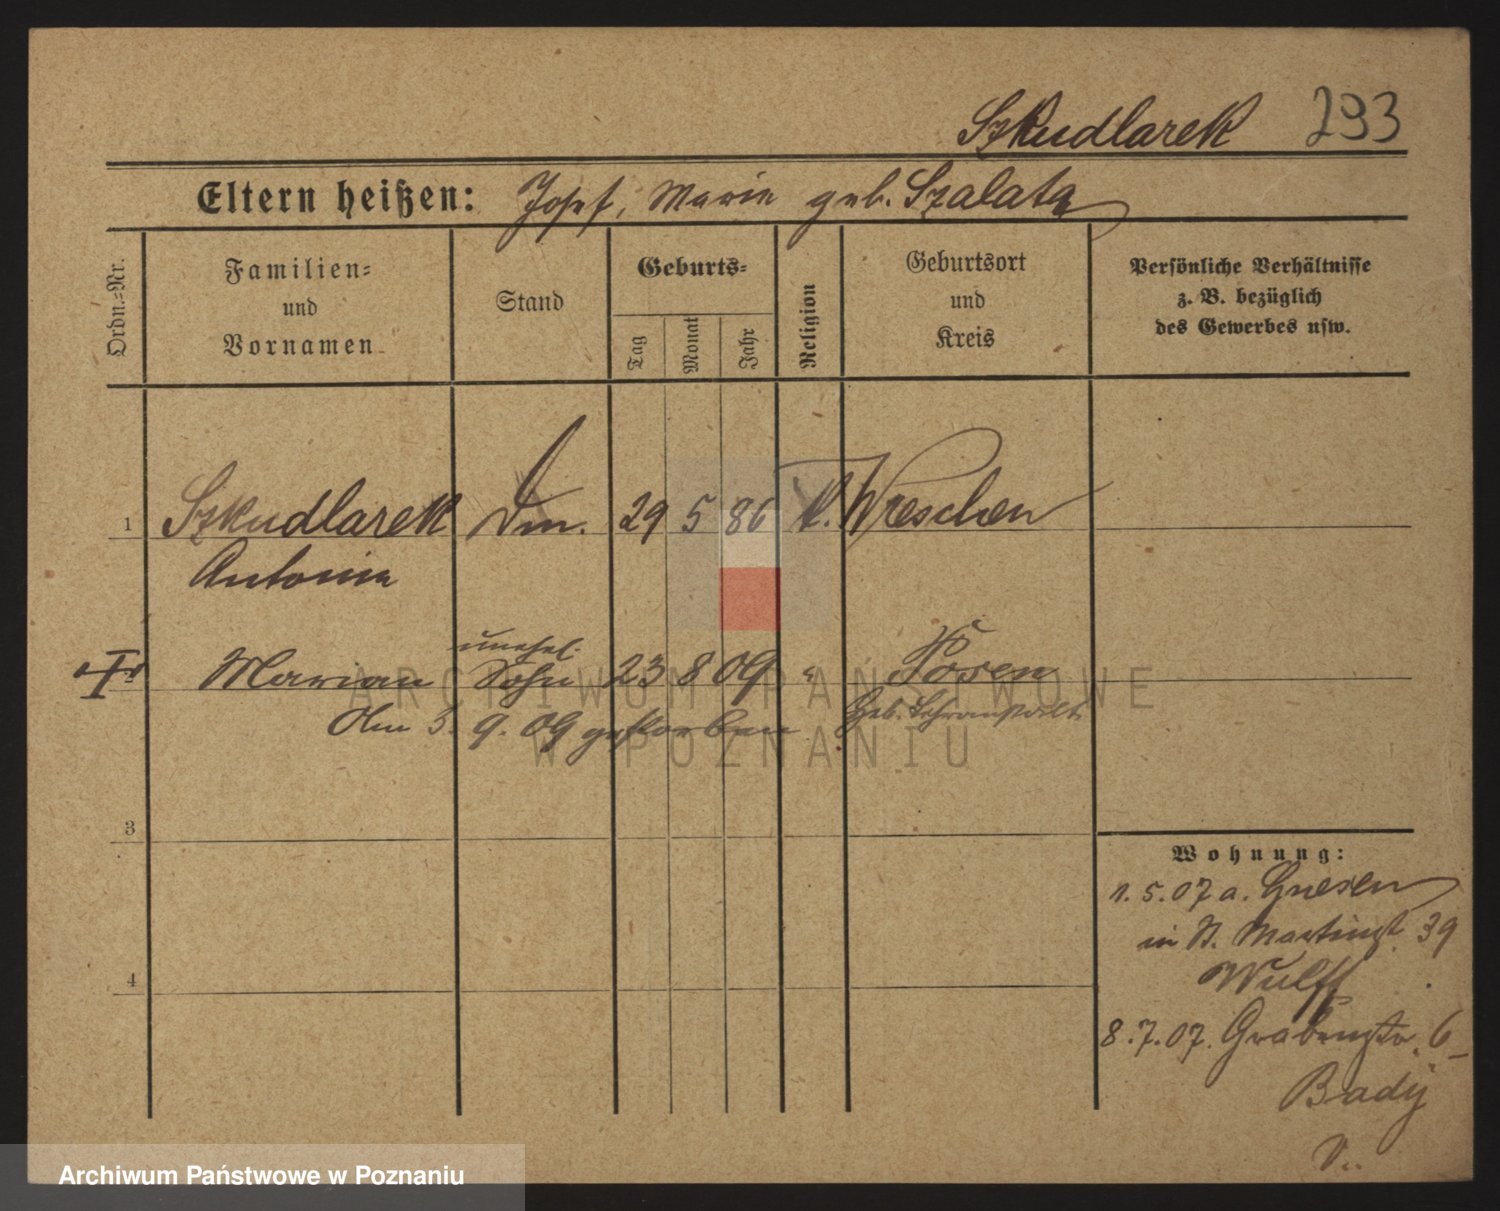 Szkudlarek 293
Eltern heißen: Josef, Marie geb. Szalata
Ordn.=Nr.
Familien=
und
Vornamen
Stand
Geburts=
Tag
Monat
Jahr
Religion
Geburtsort
und
Kreis
Persönliche Verhältnisse
z. B. bezüglich
des Gewerbes usw.
1 Szkudlarek Dm. 29 5 86 k. Wreschen
Antonie
unehel.
Marian Sohn 23 8 09 " Posen
Am 3. 9. 09 gestorben Heb. Lehranstalt
3
4
Wohnung:
1. 5. 07 a. Gnesen
in St. Martinst. 39
Wulff
8. 7. 07. Grabenstr. 6
Bady
ARCHIWUM PAŃSTWOWE
W POZNANIU
Archiwum Państwowe w Poznaniu